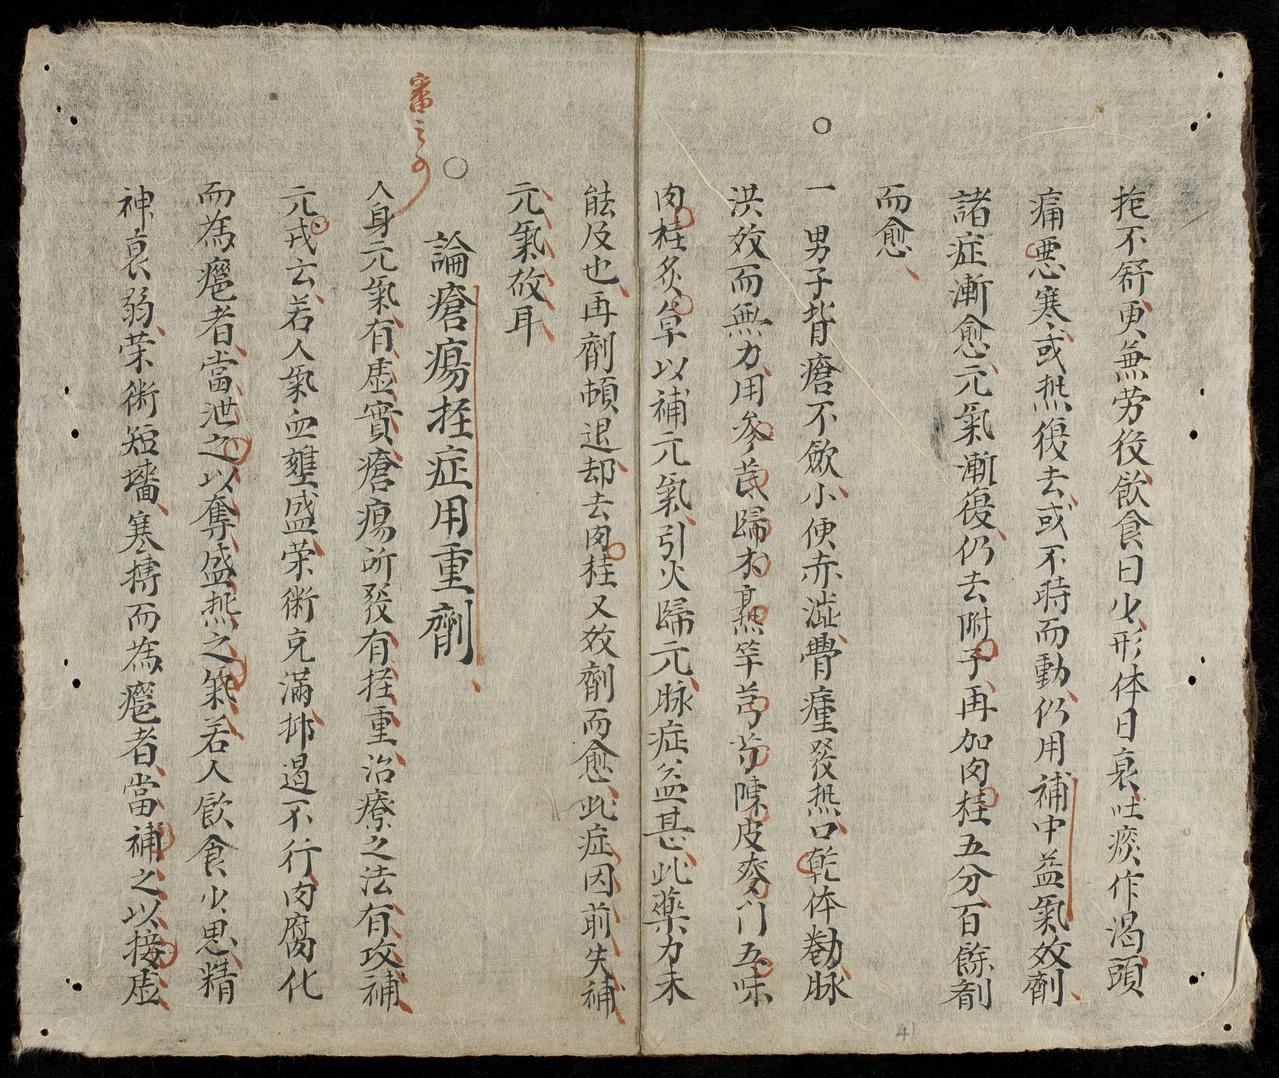 拖不舒更無劳役飲食日少形体日衰吐痰作渴頭
痛悪寒或热復去或不時而動仍用補中益氣效劑
諸症漸愈元氣漸復仍去附子再加肉桂五分百餘剤
而愈
○
一男子背瘡不歛小便赤澁臖瘇發热口乾体勌脉
洪效而無力用參芪歸朮熟竿芎芍陳皮麥门五味
肉桂炙草以補元氣引火歸元脉症益甚此藥力未
能及也再劑頓退却去肉桂又效劑而愈此症因前失補
元氣故耳
○
論瘡瘍拄症用重劑
審之可
人身元氣有虛實瘡瘍所發有拄重治療之法有攻補
元戎云若人氣血壅盛荣術充滿抑遏不行肉腐化
而為癰者當泄之以奪盛热之氣若人飲食少思精
神衰弱荣術短墻寒摶而為癰者當補之以接虛
41